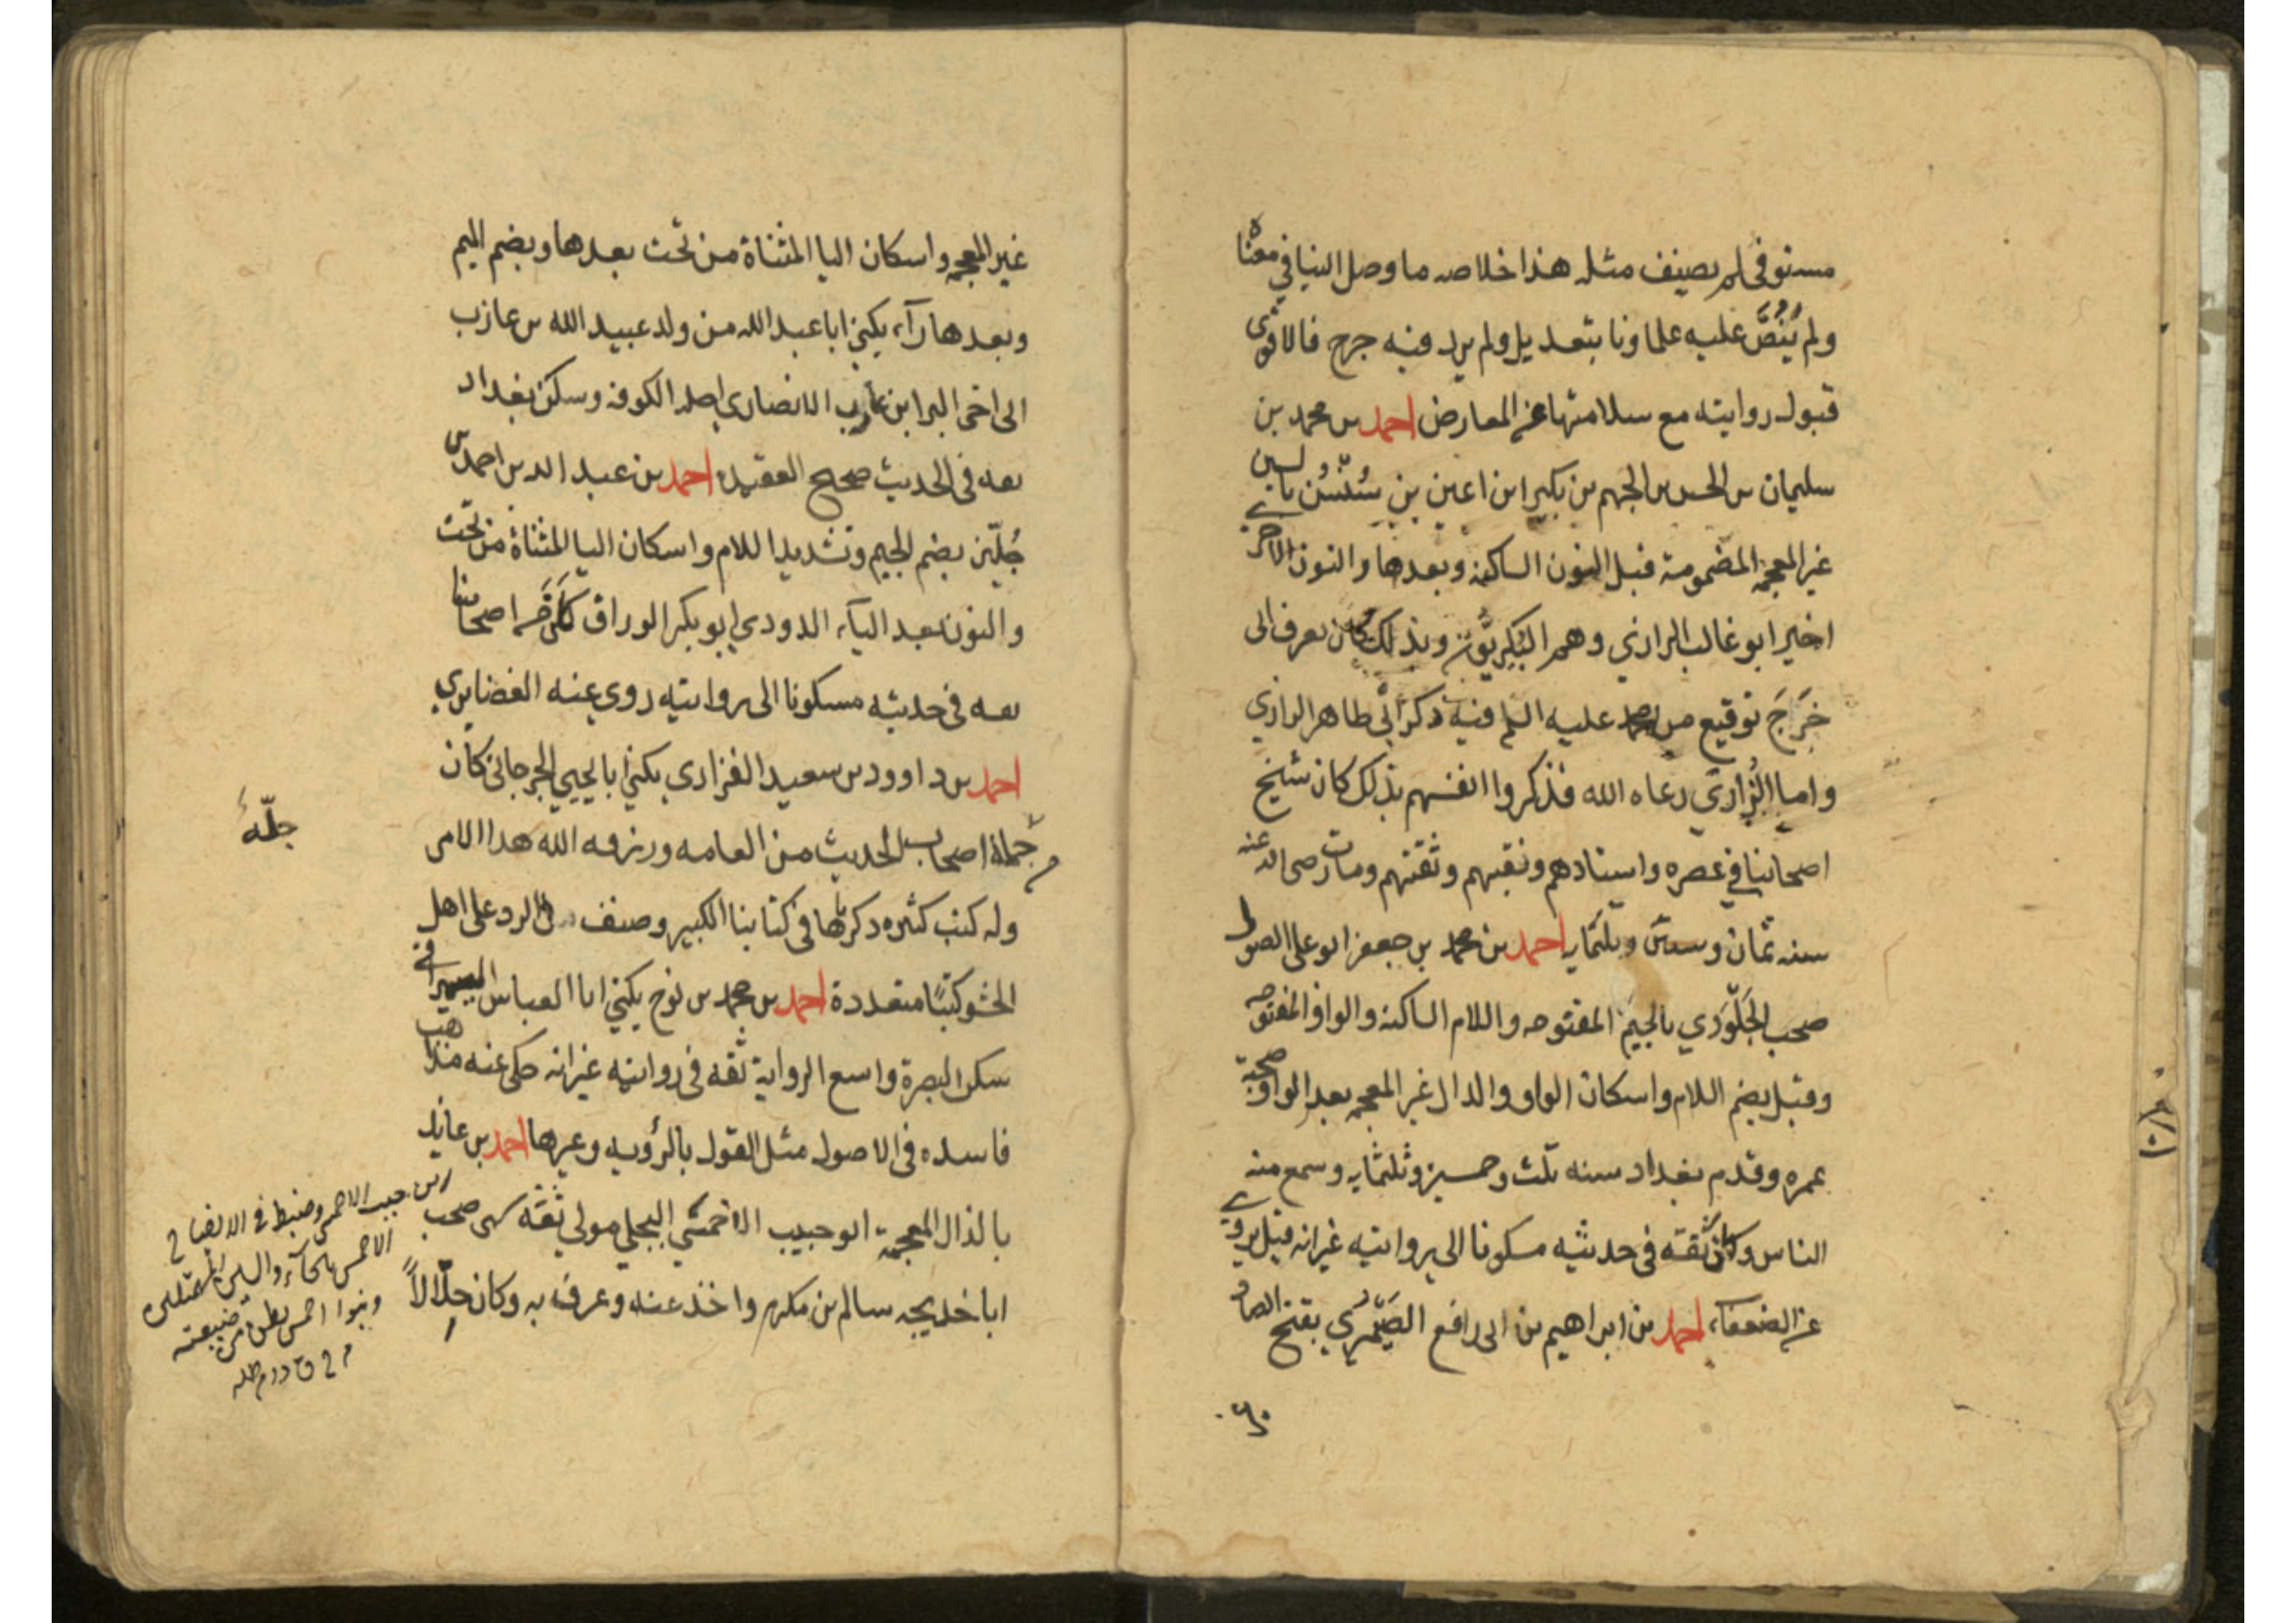 مستوفى لم يصنف مثله هذا خلاصه ما وصل الينا في معناه
ولم يُنَصَّ عليه علماونا بتعديل ولم يرد فيه جرح فالاقوى
قبول روايته مع سلامتها عن المعارض احمد بن محمد بن
سليمان بن الحسن بن الجهم بن بكير ابن اعين بن سُنْسُن بالسين
غير المعجمة المضمومة قبل النون الساكنة وبعدها والنون الاخيرة
اخيرا ابو غالب الرازي وهم البُكيريّون وبذلك كان يعرف الى
خَرَجَ توقيع من محمد عليه السلم فيه ذكر ابي طاهر الرازي
واما الزُراري رعاه الله فذكروا انفسهم بذلك كان شيخ
اصحابنا في عصره واستادهم ونقيبهم وثقتهم ومات رضى الله عنه
سنه ثمان وستين وثلثمايه احمد بن محمد بن جعفر ابو على الصولى
صحب الجَلْوَدي بالجيم المفتوحه واللام الساكنه والواو المفتوحه
وقيل بضم اللام واسكان الواو والدال غير المعجمه بعد الواو صحبة
عمره وقدم بغداد سنه ثلث وخمسين وثلثمايه وسمع منه
الناس وكان ثقته في حديثه مسكونا الى روايته غير انه قيل يروي
عن الضعفاء احمد بن ابراهيم بن ابى رافع الصَيْمَري بفتح الصاد
غير المعجمه واسكان اليا المثناة من تحت بعدها وبضم الميم
وبعدها رآء يكنى ابا عبد الله من ولد عبيد الله بن عازب
الى اخى البرا ابن عازب الانصاري اصله الكوفه وسكن بغداد
ثقه فى الحديث صحيح العقيده احمد بن عبد الله بن احمد بن
جُلّين بضم الجيم وتشديد اللام واسكان اليا المثناة من تحت
والنون بعد اليآء الدودي ابو بكر الوراق كان من اصحابنا
ثقه فى حديثه مسكونا الى روايته روى عنه الغضايري
احمد بن داوود بن سعيد الفزاري يكنى ابا يحيي الجرجاني كان
جملة اصحاب الحديث من العامه ورزقه الله هذا الامر
جلّة
وله كتب كثيره ذكرناها فى كتابنا الكبير وصنف في الرد على اهل
الحشو كتبًا متعددة احمد بن محمد بن نوح يكنى ابا العباس السيرافي
سكن البصرة واسع الرواية ثقه فى روايته غير انه حكى عنه مذاهب
فاسده فى الاصول مثل القول بالرؤيه وغيرها احمد بن عايذ
بالذال المعجمة ابو حبيب الاحمسي البجلي مولي ثقه صحب
ابا خديجه سالم بن مكرم واخذ عنه وعرف به وكان حلّالاً
ابن حبيب الاحمسي وضبط في الايضاح
الاحمسي بالحآء والسين المهملتين
وبنوا احمس بطن من ضبيعته